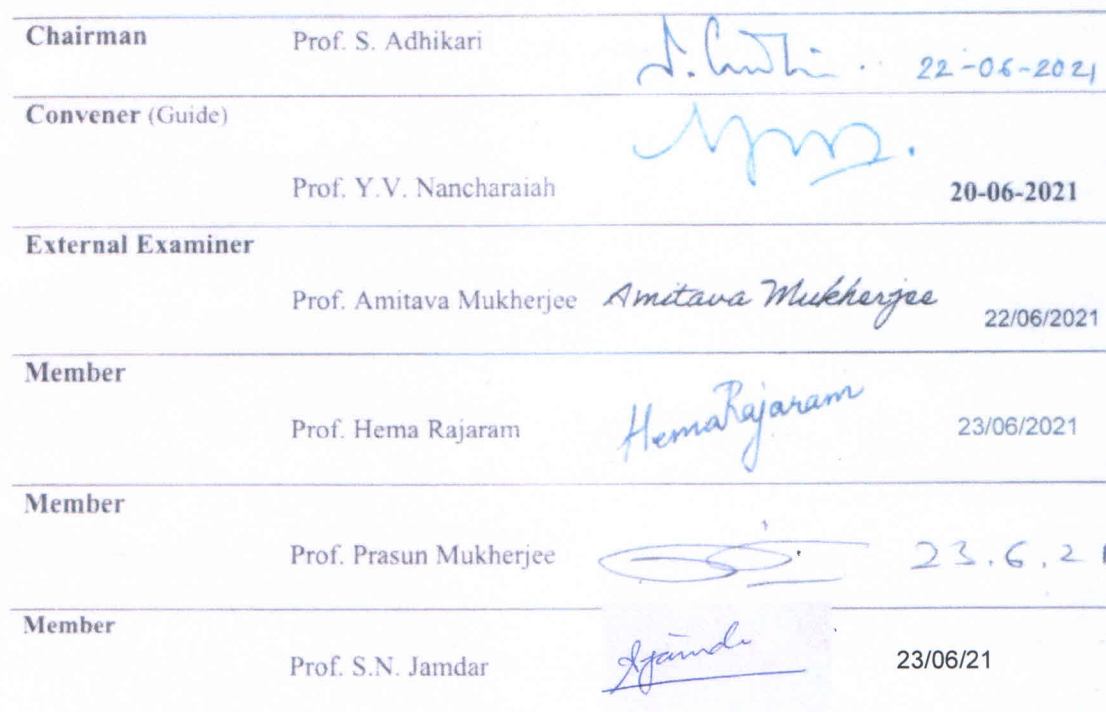 Chairman Prof. S. Adhikari 22-06-2021
Convener (Guide)
Prof. Y.V. Nancharaiah 20-06-2021
External Examiner
Prof. Amitava Mukherjee Amitava Mukherjee 22/06/2021
Member
Prof. Hema Rajaram Hema Rajaram 23/06/2021
Member
Prof. Prasun Mukherjee 23.6.21
Member
Prof. S.N. Jamdar 23/06/21